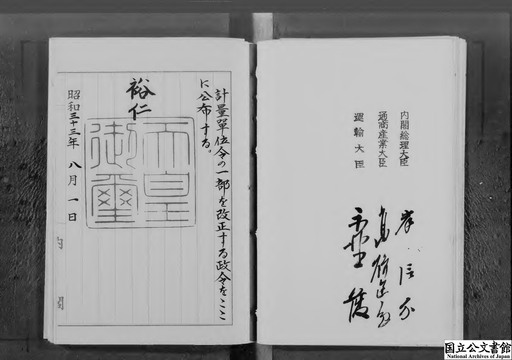 計量單位令の一部を改正する政令をここ
に公布する。
裕仁
天皇
御璽
昭和三十三年八月一日
内閣総理大臣
通商産業大臣
運輸大臣
岸信介
国立公文書館
National Archives of Japan